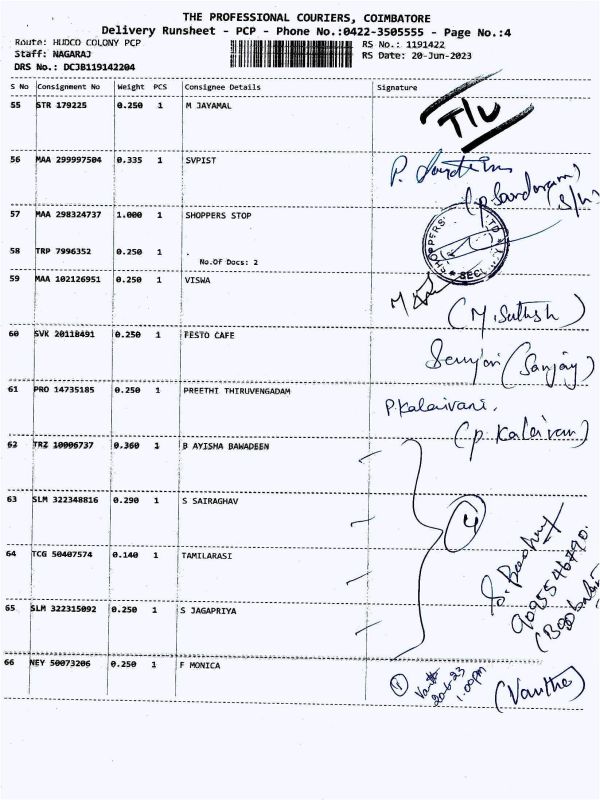 THE PROFESSIONAL COURIERS, COIMBATORE
Delivery Runsheet - PCP - Phone No.:0422-3505555 - Page No.:4
Route: HUDCO COLONY PCP
RS No.: 1191422
Staff: NAGARAJ
RS Date: 20-Jun-2023
DRS No.: DCJB119142204
S No Consignment No Weight PCS Consignee Details Signature
55 STR 179225 0.250 1 M JAYAMAL
T/L
56 MAA 299997504 0.335 1 SVPIST
P.
57 MAA 298324737 1.000 1 SHOPPERS STOP
58 TRP 7996352 0.250 1 .
No.Of Docs: 2
59 MAA 102126951 0.250 1 VISWA
(M. Sathish)
60 SVK 20118491 0.250 1 FESTO CAFE
(Sanjay)
61 PRO 14735185 0.250 1 PREETHI THIRUVENGADAM
P.Kalaivani.
(P. Kalaivani)
62 TRZ 10006737 0.360 1 B AYISHA BAWADEEN
63 SLM 322348816 0.290 1 S SAIRAGHAV
4
64 TCG 50407574 0.140 1 TAMILARASI
65 SLM 322315092 0.250 1 S JAGAPRIYA
66 NEY 50073206 0.250 1 F MONICA
1
20-6-23
1.00pm
(Vanitha)